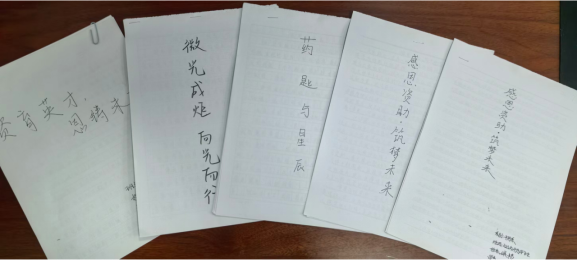 资育英才,
恩铸未
微光成炬 向光而行
药匙与星辰
感恩资助·筑梦未来
感恩资助·筑梦未来